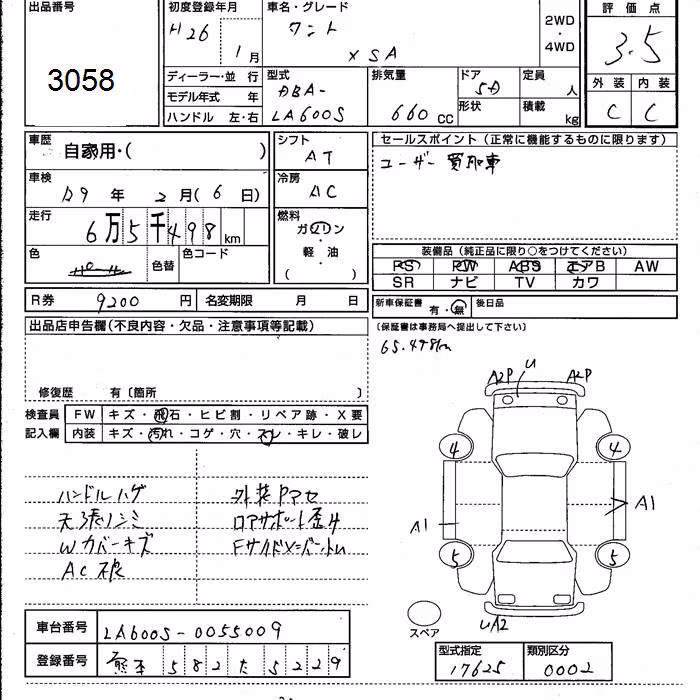 出品番号
3058
初度登録年月
H26
1月
車名・グレード
タント
X SA
2WD
・
4WD
評価点
3.5
外装 内装
C C
ディーラー・並 行
モデル年式 年
ハンドル 左・右
型式
DBA-
LA600S
排気量
660 CC
ドア
5D
形状
定員
人
積載
kg
車歴
自家用・( )
車検
29年 2月(6日)
走行
6万5千498 km
色
色替
色コード
R券 9200 円
名変期限 月 日
シフト
AT
冷房
AC
燃料
ガソリン
・
軽油
( )
セールスポイント(正常に機能するものに限ります)
ユーザー買取車
装備品(純正品に限り○をつけてください)
PS PW ABS エアB AW
SR ナビ TV カワ
新車保証書 有・無 後日品
(保証書は事務局へ提出して下さい)
65.498km
出品店申告欄(不良内容・欠品・注意事項等記載)
修復歴 有〔箇所 〕
検査員 FW キズ・飛石・ヒビ割・リペア跡・X要
記入欄 内装 キズ・汚れ・コゲ・穴・スレ・キレ・破レ
ハンドルハゲ
天張リシミ
Wカバーキズ
AC不良
外装Pマセ
ロアサポート歪サ
A2P U A2P
4 4
A1 A1
5 5
UA2
スペア
車台番号 LA600S-0055009
登録番号 熊本 582 た 5229
型式指定 類別区分
17625 0002